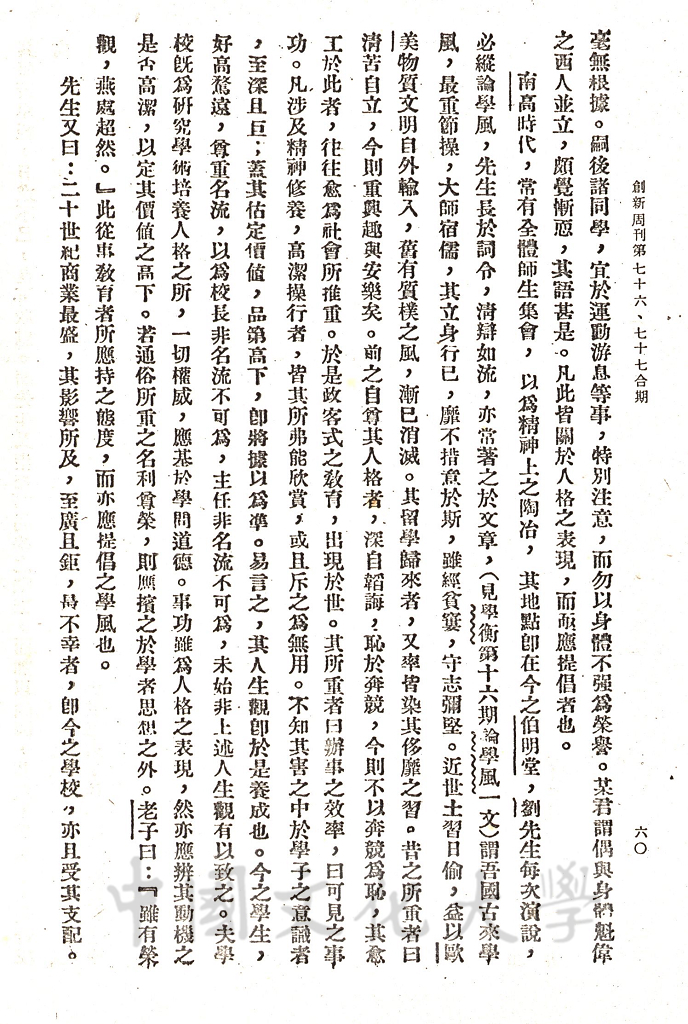 創新周刊第七十六、七十七合期
六〇
毫無根據。嗣後諸同學，宜於運動游息等事，特別注意，而勿以身體不强爲榮譽。某君謂偶與身體魁偉
之西人並立，頗覺慚恧，其語甚是。凡此皆關於人格之表現，而頗應提倡者也。
南高時代，常有全體師生集會，以爲精神上之陶冶，其地點卽在今之伯明堂，劉先生每次演說，
必縱論學風，先生長於詞令，清辯如流，亦常著之於文章，（見學衡第十六期論學風一文）謂吾國古來學
風，最重節操，大師宿儒，其立身行已，靡不措意於斯，雖經貧窶，守志彌堅。近世士習日偷，益以歐
美物質文明自外輸入，舊有質樸之風，漸已消滅。其留學歸來者，又率皆染其侈靡之習。昔之所重者曰
清苦自立，今則重興趣與安樂矣。前之自尊其人格者，深自韜誨，恥於奔競，今則不以奔競爲恥，其愈
工於此者，往往愈爲社會所推重。於是政客式之敎育，出現於世。其所重者曰辦事之效率，曰可見之事
功。凡涉及精神修養，高潔操行者，皆其所弗能欣賞，或且斥之爲無用。不知其害之中於學子之意識者
，至深且巨；蓋其估定價値，品第高下，卽將據以爲準。易言之，其人生觀卽於是養成也。今之學生，
好高騖遠，尊重名流，以爲校長非名流不可爲，主任非名流不可爲，未始非上述人生觀有以致之。夫學
校旣爲研究學術培養人格之所，一切權威，應基於學問道德。事功雖爲人格之表現，然亦應辨其動機之
是否高潔，以定其價値之高下。若通俗所重之名利尊榮，則應擯之於學者思想之外。老子曰：『雖有榮
觀，燕處超然。』此從事敎育者所應持之態度，而亦應提倡之學風也。
先生又曰：二十世紀商業最盛，其影響所及，至廣且鉅，最不幸者，卽今之學校，亦且受其支配。
中國文化大學